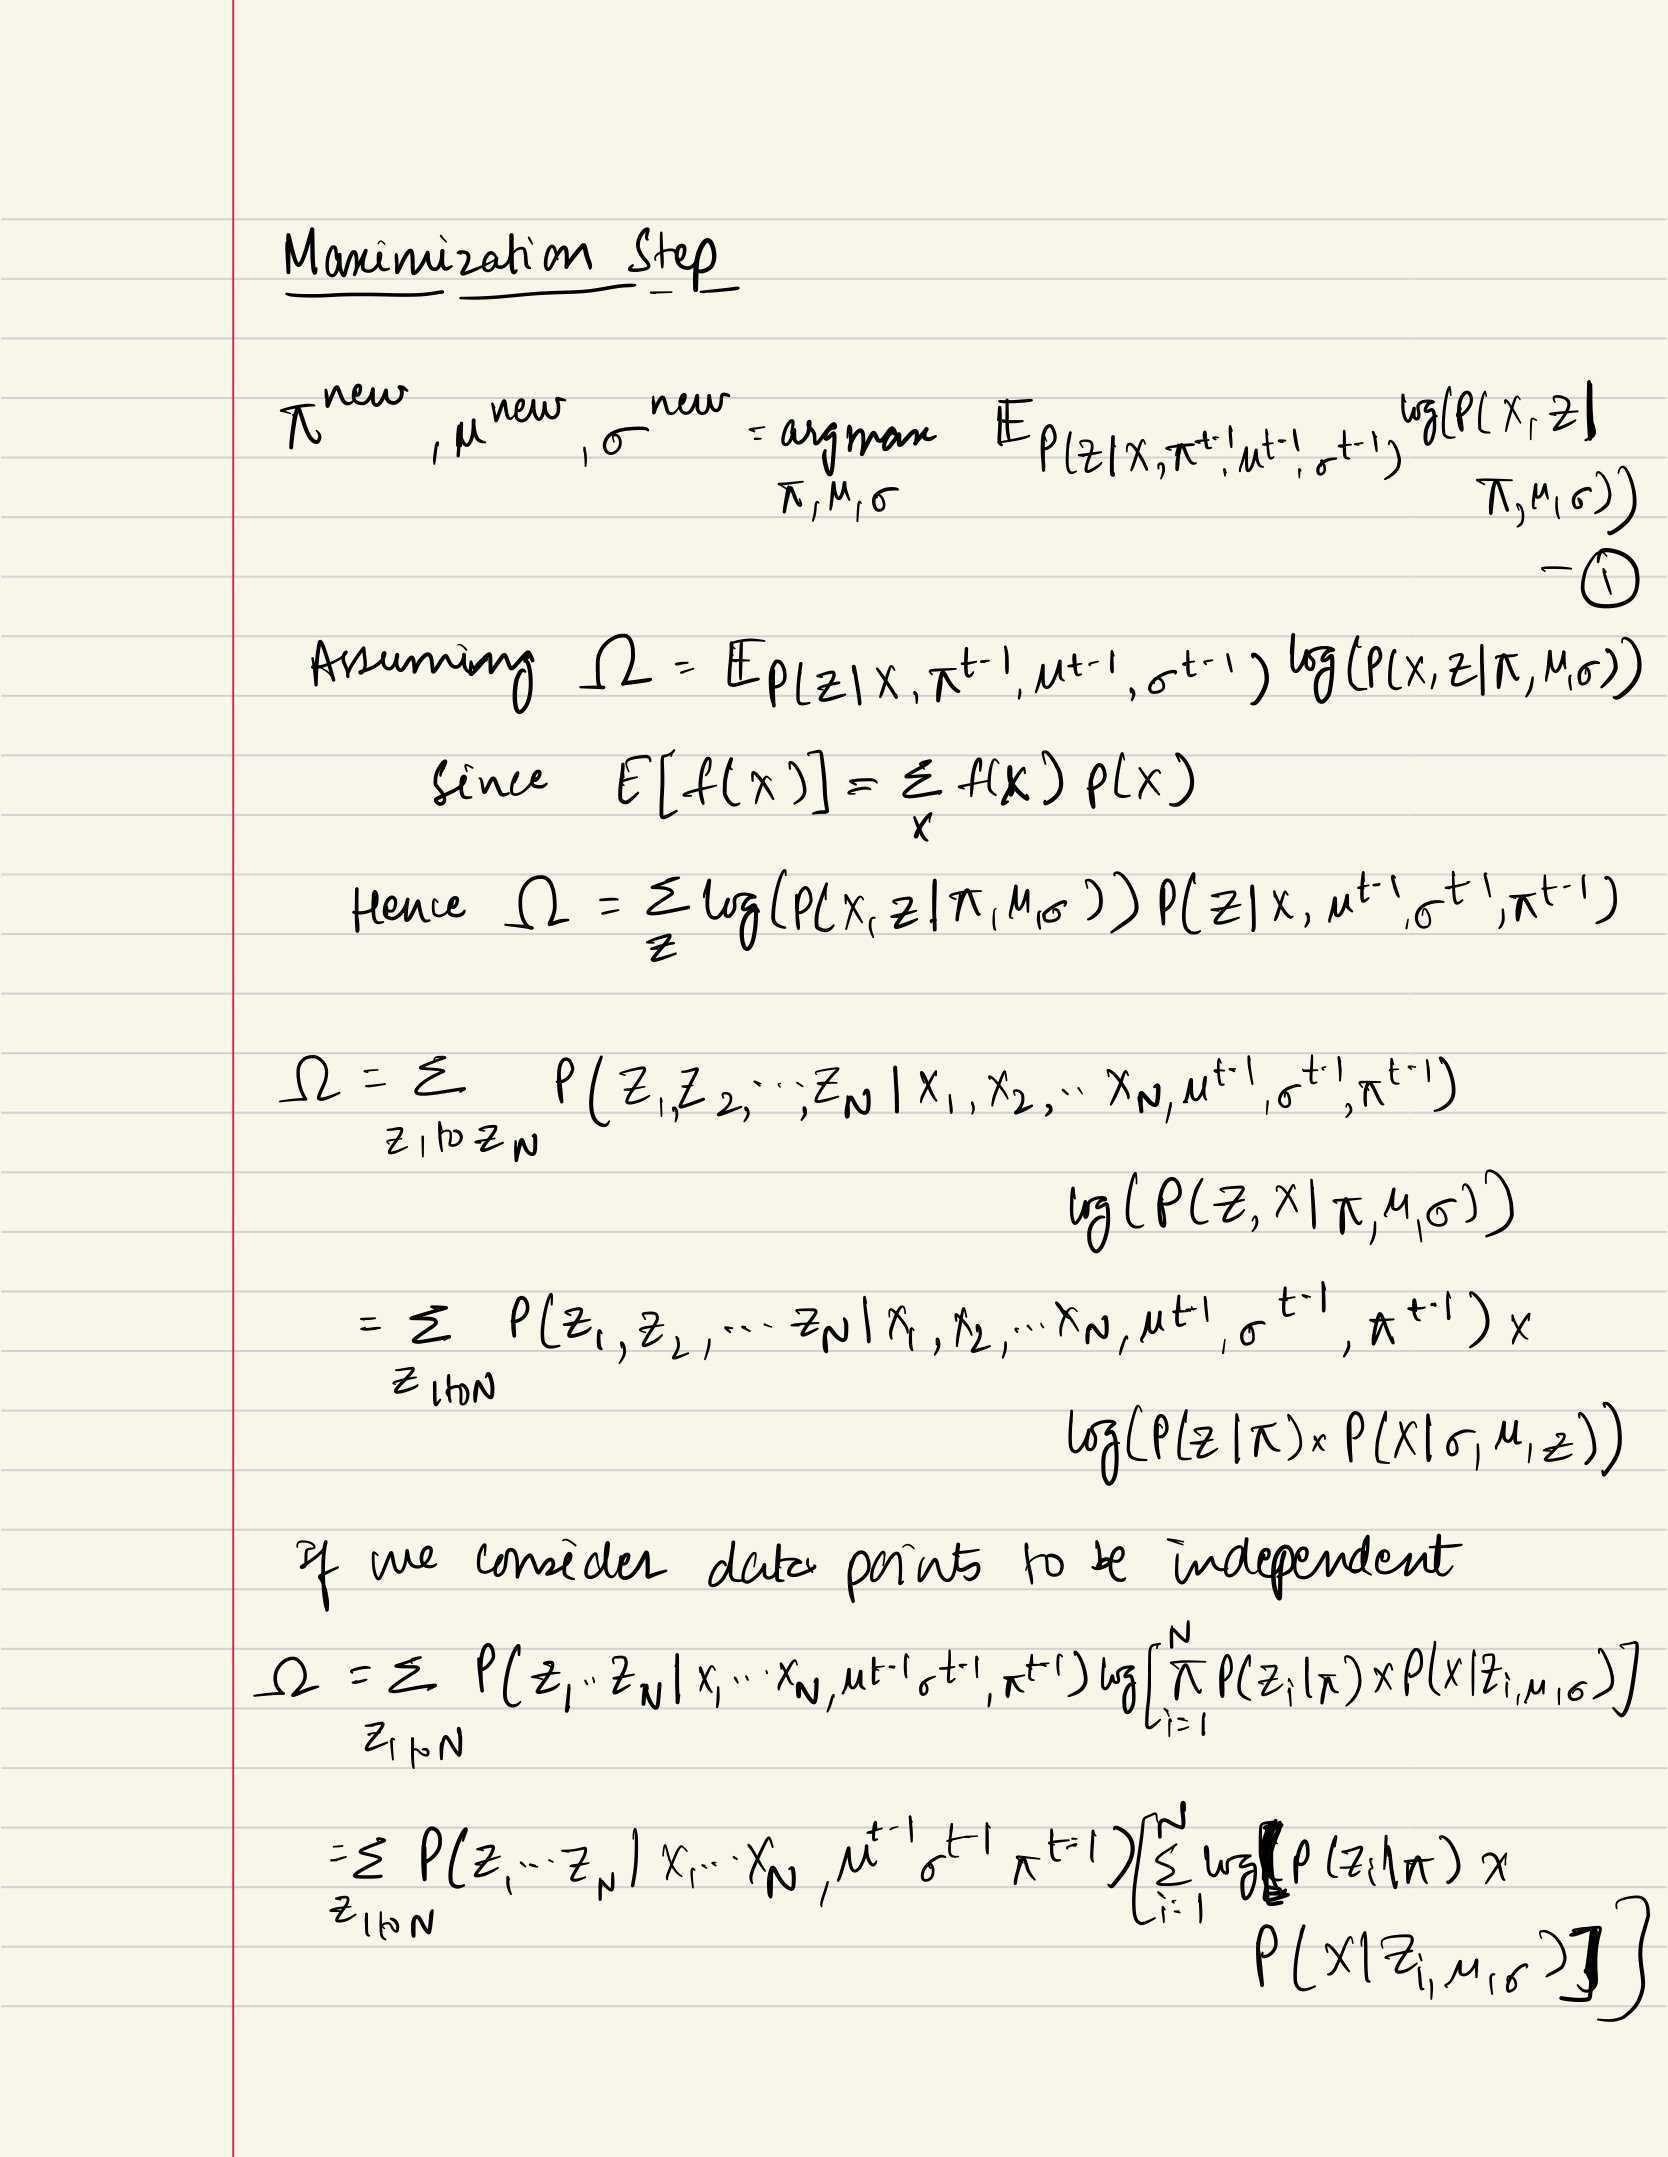 Maximization Step
π^new, μ^new, σ^new = argmax_{π, μ, σ} 𝔼_{P(z|x, π^{t-1}, μ^{t-1}, σ^{t-1})} log(P(x, z|
π, μ, σ))
- ①
Assuming Ω = 𝔼_{P(z|x, π^{t-1}, μ^{t-1}, σ^{t-1})} log(P(x, z|π, μ, σ))
Since E[f(x)] = Σ_x f(x) p(x)
Hence Ω = Σ_z log(P(x, z|π, μ, σ)) P(z|x, μ^{t-1}, σ^{t-1}, π^{t-1})
Ω = Σ_{z_1 to z_N} P(z_1, z_2, ..., z_N | x_1, x_2, .. x_N, μ^{t-1}, σ^{t-1}, π^{t-1})
log(P(z, x|π, μ, σ))
= Σ_{z_1 to N} P(z_1, z_2, ... z_N | x_1, x_2, ... x_N, μ^{t-1}, σ^{t-1}, π^{t-1}) ×
log(P(z|π) × P(x|σ, μ, z))
If we consider data points to be independent
Ω = Σ_{z_1 to N} P(z_1 .. z_N | x_1 ... x_N, μ^{t-1} σ^{t-1}, π^{t-1}) log[π_{i=1}^N P(z_i|π) × P(x|z_i, μ, σ)]
= Σ_{z_1 to N} P(z_1 ... z_N | x_1 ... x_N, μ^{t-1} σ^{t-1} π^{t-1}) [Σ_{i=1}^N log[P(z_i|π) ×
P(x|z_i, μ, σ)]]